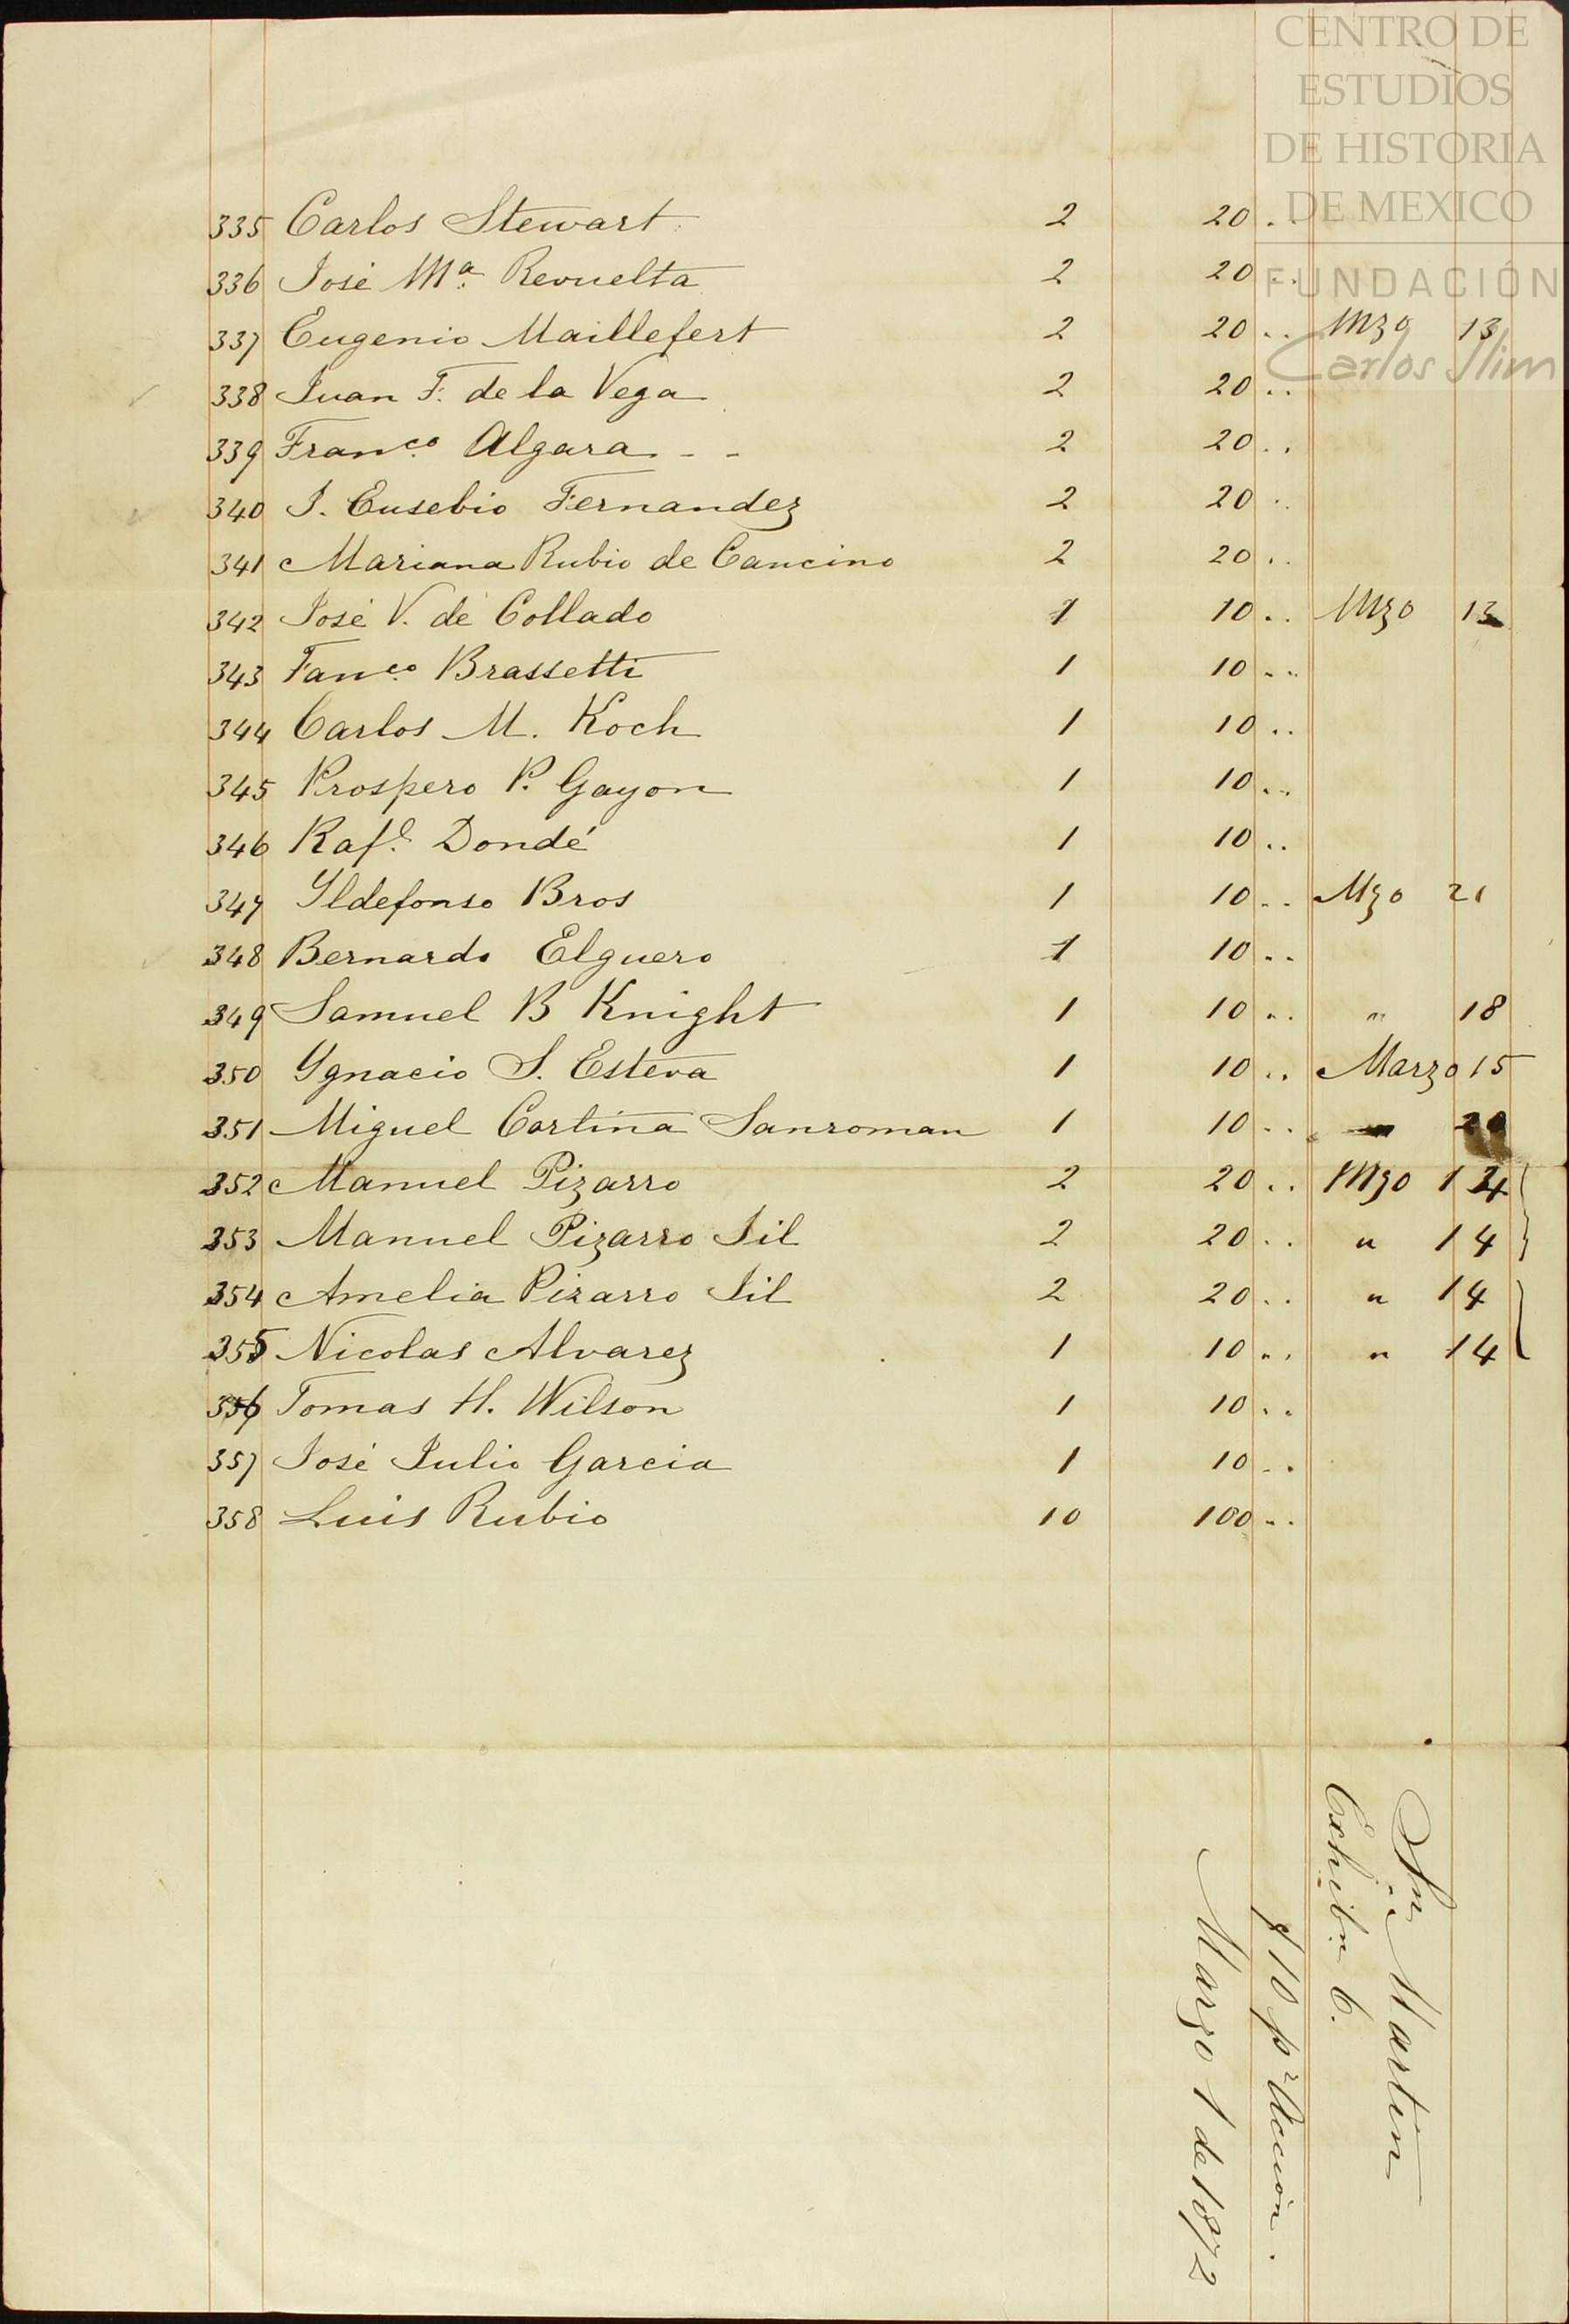 CENTRO DE
ESTUDIOS
DE HISTORIA
DE MEXICO
FUNDACIÓN
Carlos Slim
335 Carlos Stewart 2 20 ..
336 José Mª Revuelta 2 20 ..
337 Eugenio Maillefert 2 20 .. Mzo 13
338 Juan F. de la Vega 2 20 ..
339 Franco. Algara - - 2 20 ..
340 J. Eusebio Fernandez 2 20 ..
341 Mariana Rubio de Cancino 2 20 ..
342 José V. de Collado 1 10 .. Mzo 13
343 Fanco. Brassetti 1 10 ..
344 Carlos M. Koch 1 10 ..
345 Prospero P. Gayon 1 10 ..
346 Rafl. Dondé 1 10 ..
347 Yldefonso Bros 1 10 .. Mzo 21
348 Bernardo Elguero 1 10 ..
349 Samuel B Knight 1 10 .. " 18
350 Ygnacio S. Esteva 1 10 .. Marzo 15
351 Miguel Cortina Sanroman 1 10 ..
352 Manuel Pizarro 2 20 .. Mzo 14
353 Manuel Pizarro Jil 2 20 .. " 14
354 Amelia Pizarro Jil 2 20 .. " 14
355 Nicolas Alvarez 1 10 .. " 14
356 Tomas H. Wilson 1 10 ..
357 José Julio Garcia 1 10 ..
358 Luis Rubio 10 100 ..
Sn Martin
Exhibn 6.
$10 pr Accion.
Marzo 1 de 1872